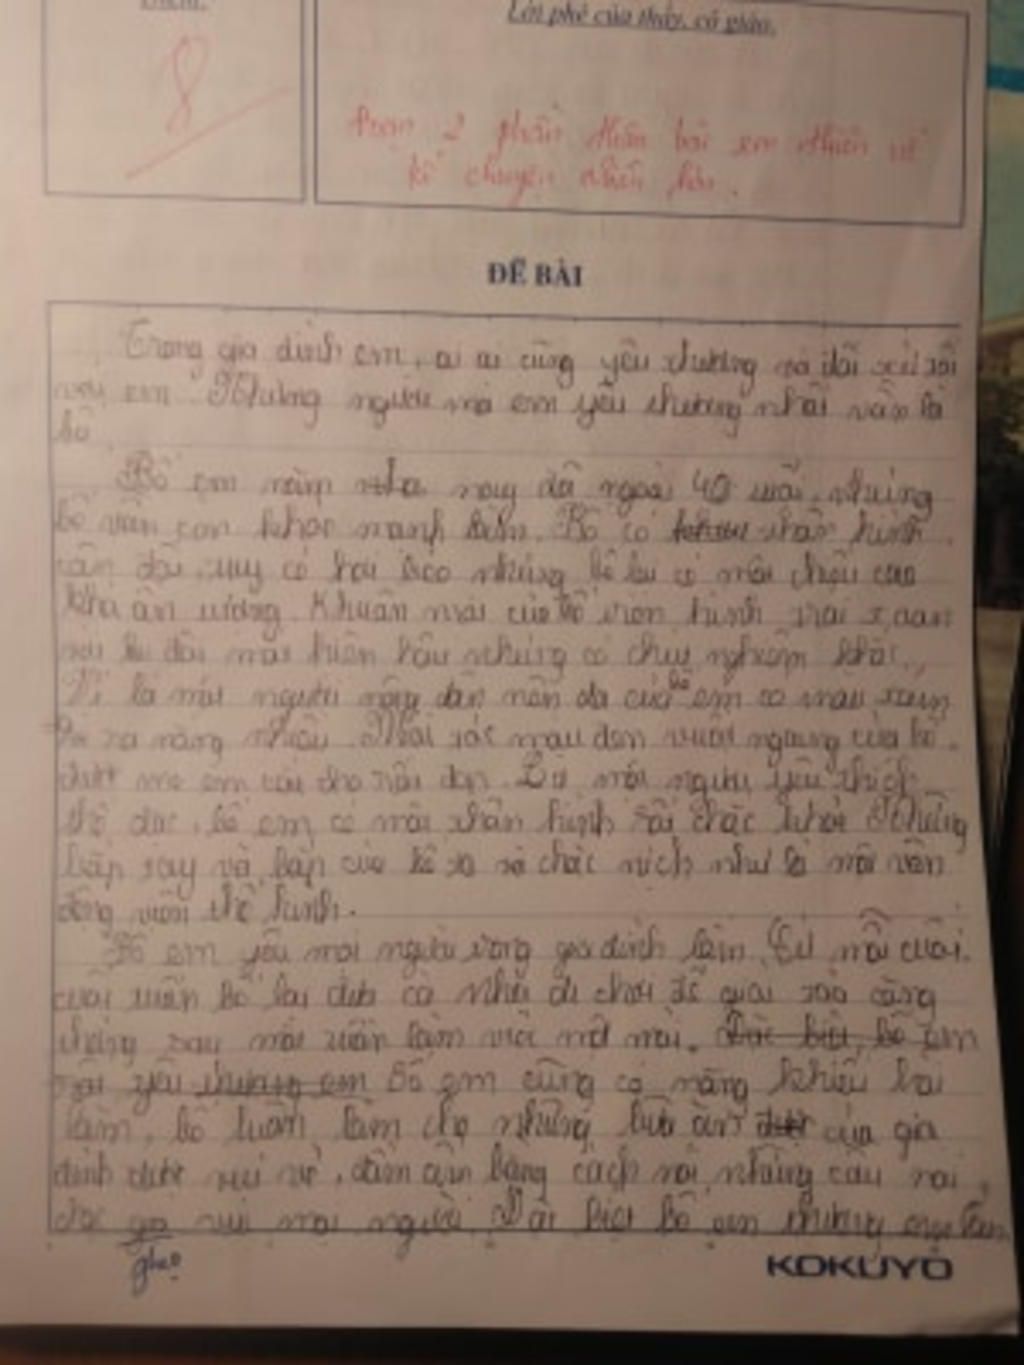 Điểm.
Lời phê của thầy, cô giáo.
8
đoạn 2 phần thân bài em thiên về
kể chuyện nhiều hơn.
ĐỀ BÀI
Trong gia đình em, ai ai cũng yêu thương và đối xử tốt
với em. Nhưng người mà em yêu thương nhất vẫn là
bố
Bố em năm nay đã ngoài 40 tuổi nhưng
bố vẫn còn khoẻ mạnh lắm. Bố có thân hình
cân đối, tuy có hơi béo nhưng bố lại có một chiều cao
khá ấn tượng. Khuôn mặt của bố hình trái xoan
với đôi mắt hiền hậu nhưng có chút nghiêm khắc.
Vì là một người nông dân nên da của bố em có màu
ra nắng nhiều. Mái tóc màu đen của bố
được mẹ em cắt cho rất đẹp. Là một người yêu thích
thể dục, bố em có một thân hình rất chắc khoẻ. Những
bắp tay và bắp của bố to và chắc nịch như là một vận
động viên thể hình.
Bố em yêu mọi người trong gia đình lắm. Cứ mỗi cuối
cuối tuần bố lại đưa cả nhà đi chơi để giải toả căng
thẳng sau một tuần làm việc mệt mỏi. Đặc biệt, bố em
rất yêu thương em Bố em cũng có năng khiếu hài
lắm, bố luôn làm cho những bữa ăn của gia
đình được vui vẻ, đầm ấm bằng cách nói những câu nói
mọi người. Đặc biệt bố em thương em lắm
KOKUYO